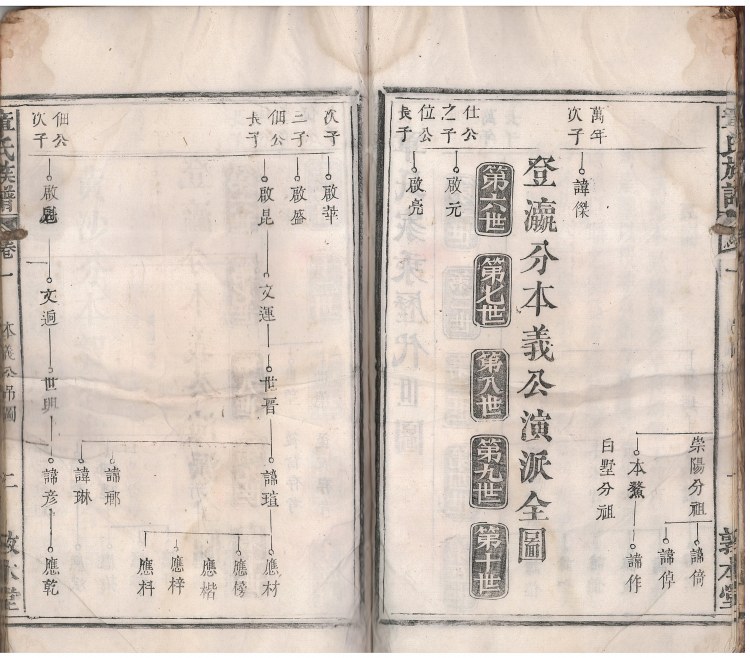 萬年
次子
諱傑
崇陽分祖
諱倚
諱倬
本鰲
諱作
白墅分祖
登瀛分本義公演派全圖
第六世
第七世
第八世
第九世
第十世
仕公
之子
啟元
位公
長子
啟亮
敦本堂
次子
啟華
三子
啟盛
佃公
長子
啟昆
文運
世晉
諱瑄
應材
應楷
應梓
應科
諱琳
佃公
次子
文逈
世興
諱彥
應乾
童氏族譜
卷一
本義公吊圖
二
敦本堂